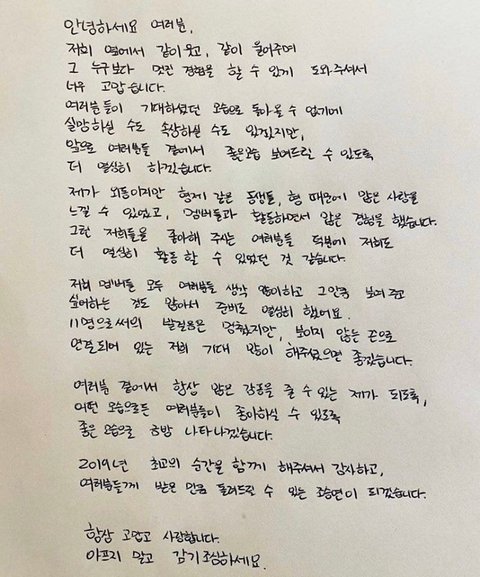 안녕하세요 여러분,
저희 옆에서 같이 웃고, 같이 울어주며
그 누구보다 멋진 경험을 할 수 있게 도와주셔서
너무 고맙습니다.
여러분들이 기대하셨던 모습으로 돌아올 수 없기에
실망하실 수도 속상하실 수도 있겠지만,
앞으로 여러분들 곁에서 좋은모습 보여드릴 수 있도록
더 열심히 하겠습니다.
제가 외동이지만 형제 같은 동생들, 형 때문에 많은 사랑을
느낄 수 있었고, 멤버들과 활동하면서 많은 경험을 했습니다.
그런 저희들을 좋아해 주시는 여러분들 덕분에 저희도
더 열심히 활동 할 수 있었던 것 같습니다.
저희 멤버들 모두 여러분들 생각 많이하고 그만큼 보여주고
싶어하는 것도 많아서 준비도 열심히 했어요.
11명으로써의 발걸음은 멈췄지만, 보이지 않는 끈으로
연결되어 있는 저희 기대 많이 해주셨으면 좋겠습니다.
여러분 곁에서 항상 많은 감동을 줄 수 있는 제가 되도록,
어떤 모습으로든 여러분들이 좋아하실 수 있도록
좋은 모습으로 금방 나타나겠습니다.
2019년 최고의 순간을 함께 해주셔서 감사하고,
여러분들께 받은 만큼 돌려드릴 수 있는 조승연이 되겠습니다.
항상 고맙고 사랑합니다.
아프지 말고 감기조심하세요.